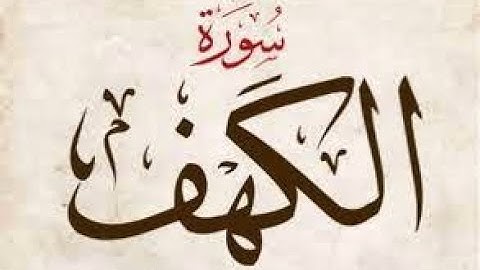 سُورَة
الكَهف